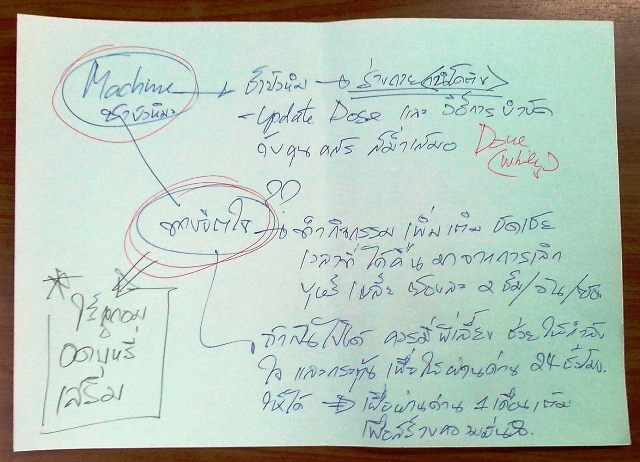 Machine → ช้าบัวหิมะ → ร่างกาย (นิโคติน)
ช้าบัวหิมะ
- Update Dose และ วิธีการ บำบัด
กับคุณ ภัสร สม่ำเสมอ Done
??
ทางจิตใจ → ทำกิจกรรม เพิ่มเติม ชดเชย
เวลาที่ ได้คืน มาจากการเลิก
บุหรี่ เฉลี่ย คนละ 2 ชม/วัน/
ใช้ลูกอม
อดบุหรี่
เสริม
ถ้าเป็นไปได้ ควรมีพี่เลี้ยง ช่วย ให้กำลัง
ใจ และกระตุ้น เพื่อให้ผ่านด่าน 24 ชั่วโมง
ให้ได้ → เพื่อผ่านด่าน 1 เดือนเต็ม
เพื่อสร้างความมั่นใจ.